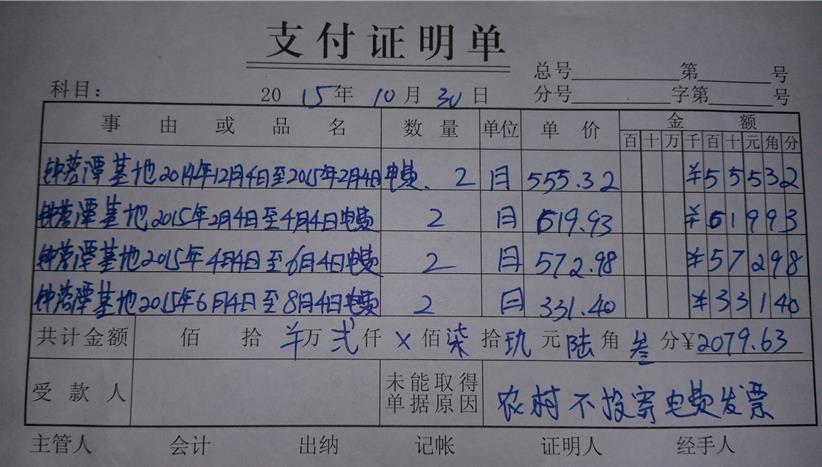 支付证明单
总号 第 号
科目： 2015年10月30日 分号 字第 号
事由或品名 数量 单位 单价 金额
百 十 万 千 百 十 元 角 分
钟落潭基地2014年12月4日至2015年2月4日电费. 2 月 555.32 ¥55532
钟落潭基地2015年2月4日至4月4日电费 2 月 619.93 ¥61993
钟落潭基地2015年4月4日至6月4日电费 2 月 572.98 ¥57298
钟落潭基地2015年6月4日至8月4日电费 2 月 331.40 ¥33140
共计金额 佰 拾 ¥万 弍仟 × 佰 柒拾 玖元 陆角 叁分 ¥2079.63
受款人 未能取得单据原因 农村不投寄电费发票
主管人 会计 出纳 记帐 证明人 经手人